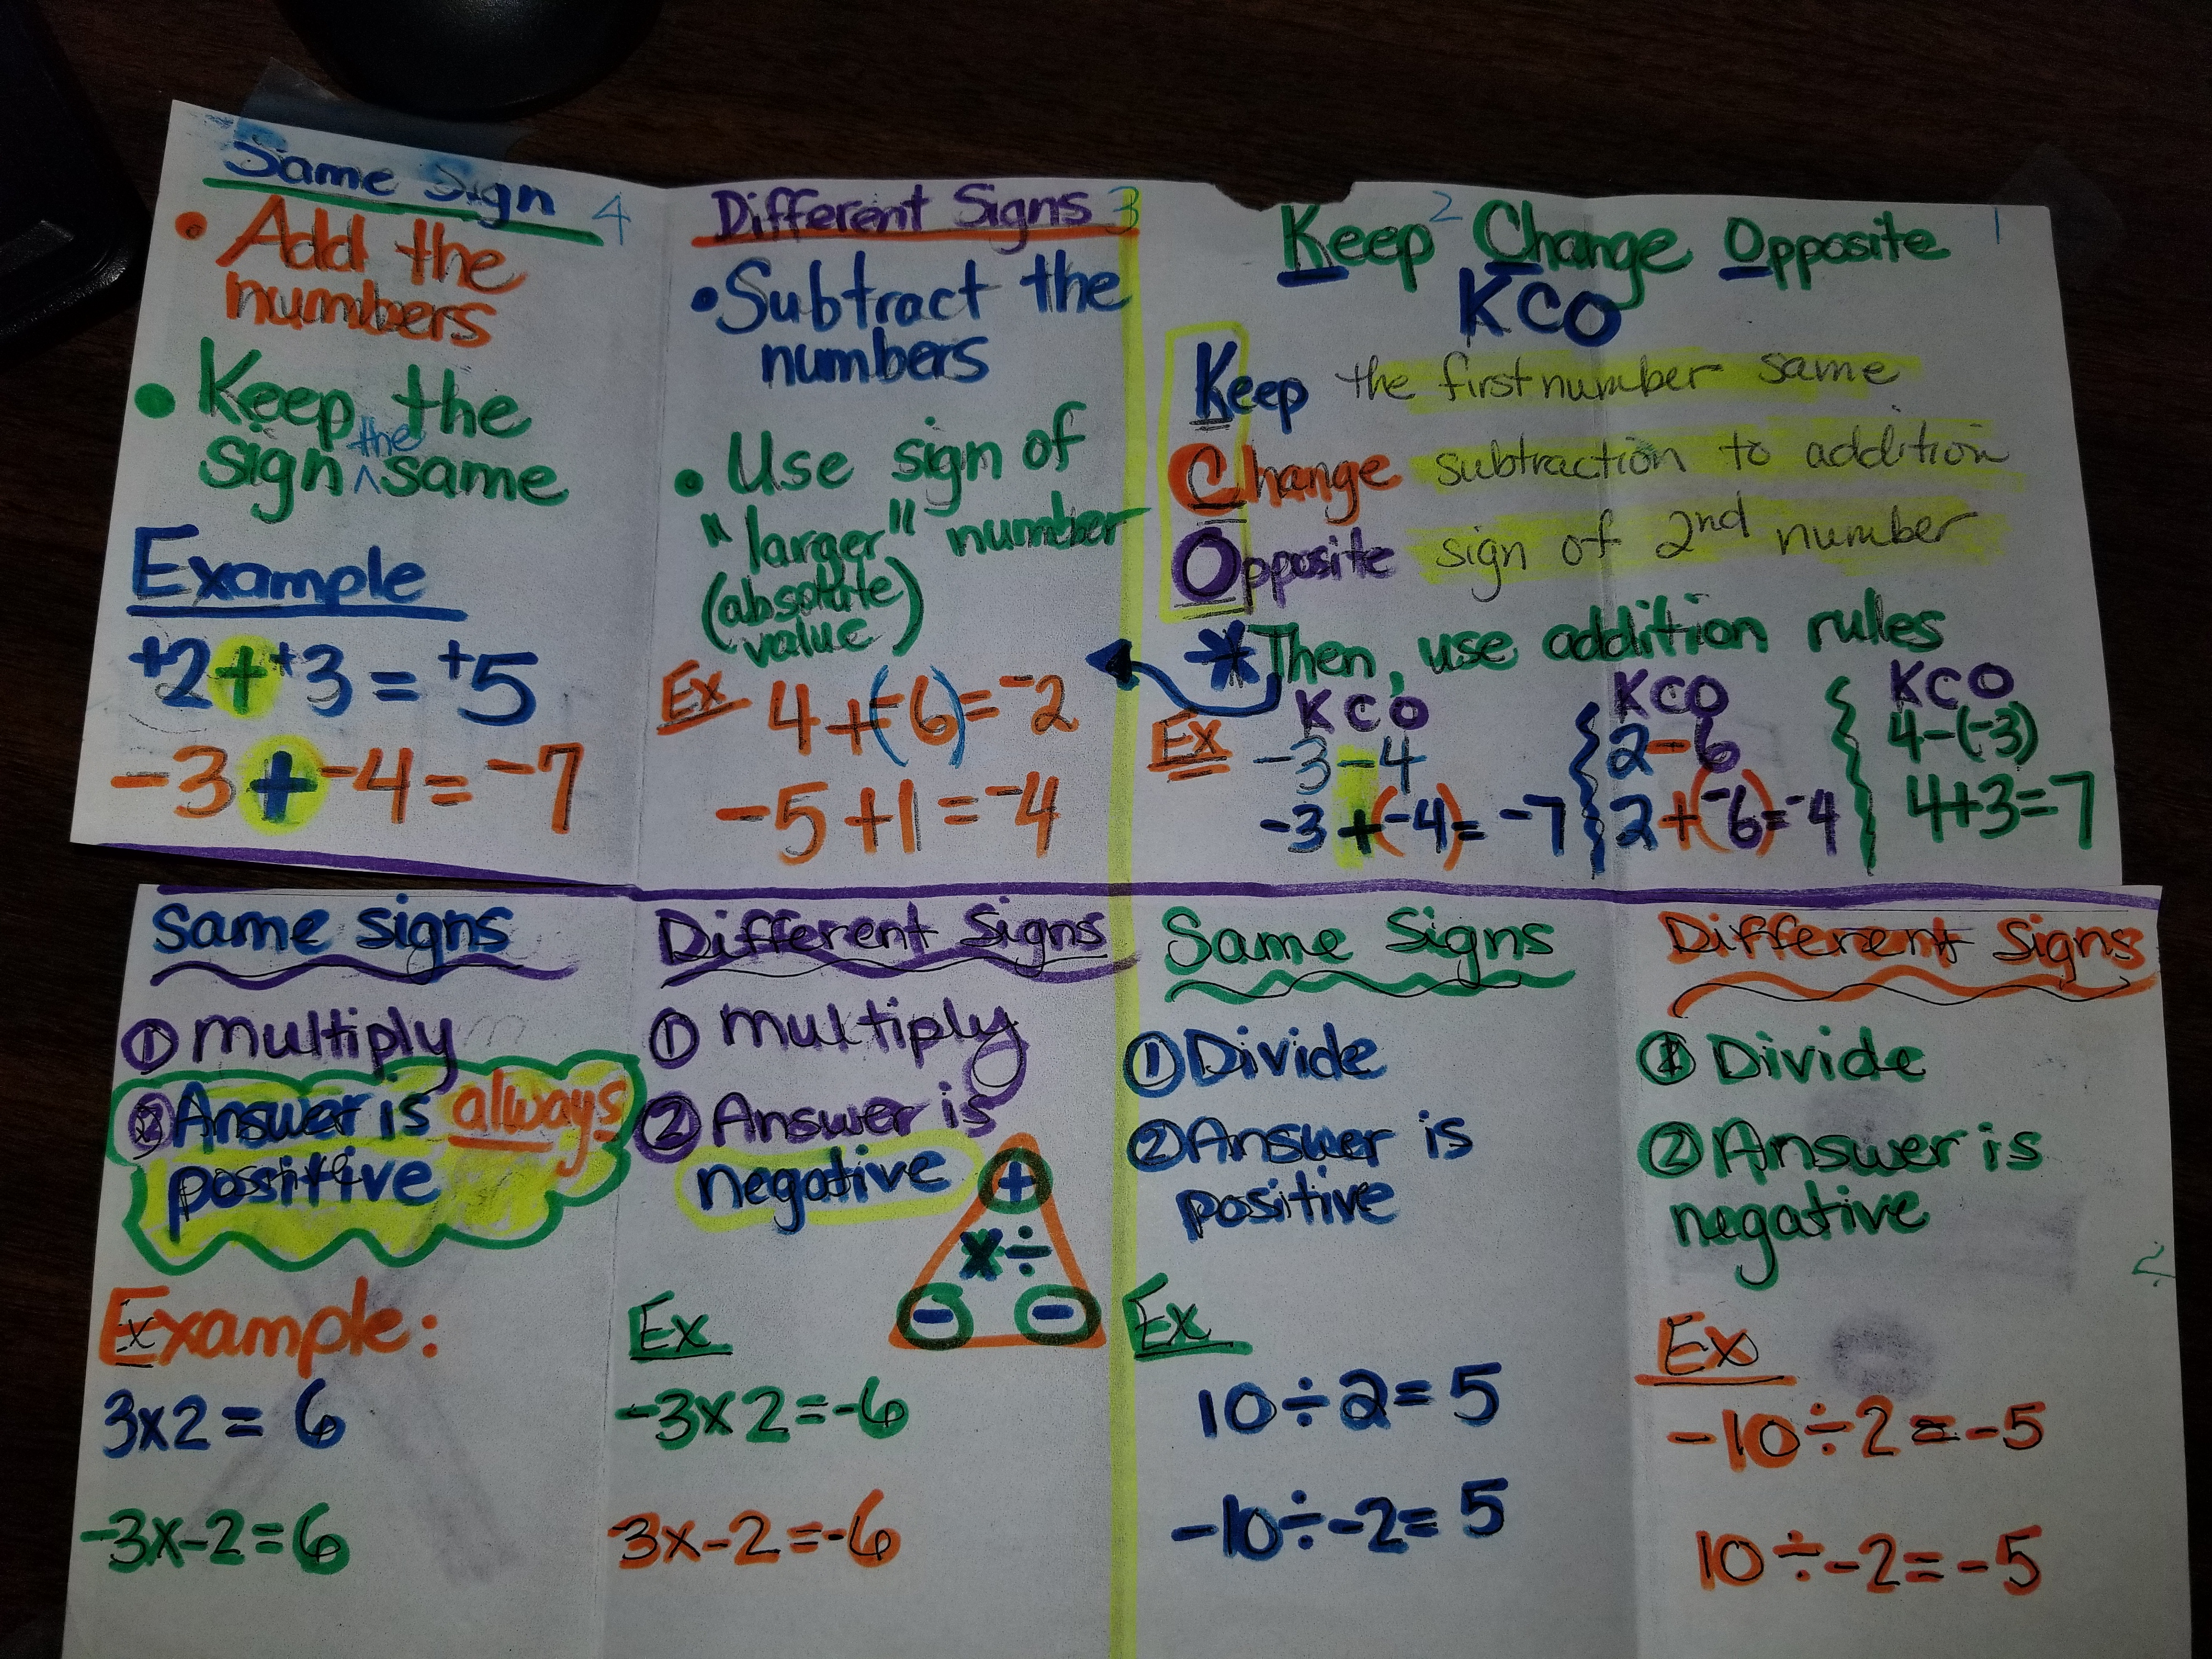 Same Sign 4
• Add the
numbers
• Keep the
sign ^the same
Example
+2 + +3 = +5
-3 + -4 = -7
Different Signs 3
• Subtract the
numbers
• Use sign of
"larger" number
(absolute
value)
Ex 4+(-6)=-2
-5+1=-4
2 1
Keep Change Opposite
KCO
Keep the first number same
Change subtraction to addition
Opposite sign of 2nd number
* Then, use addition rules
Ex
KCO
-3-4
-3+(-4)=-7
KCO
2-6
2+(-6)=-4
KCO
4-(-3)
4+3=7
Same signs
① multiply
② Answer is allways
positive
Example:
3x2=6
-3x-2=6
Different Signs
① multiply
② Answer is
negative
+
x÷
- -
Ex
-3x2=-6
3x-2=-6
Same Signs
① Divide
② Answer is
positive
Ex
10÷2=5
-10÷-2=5
Different Signs
① Divide
② Answer is
negative
Ex
-10÷2=-5
10÷-2=-5